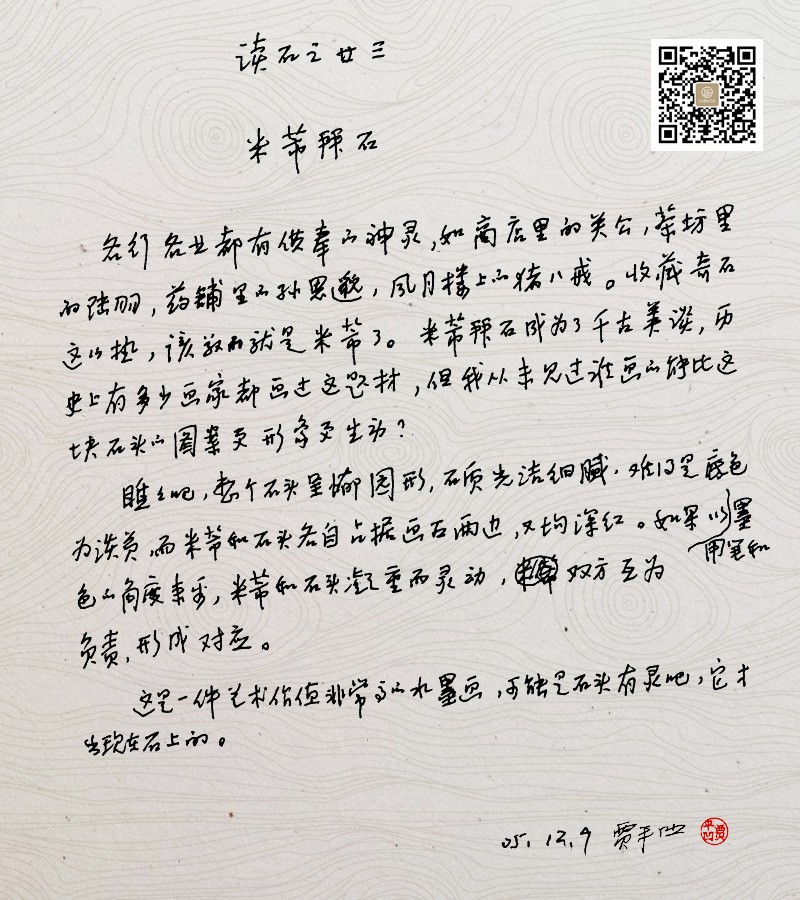 读石之廿三
米芾拜石
各行各业都有供奉的神灵,如商店里的关公,茶坊里
的陆羽,药铺里的孙思邈,风月楼上的猪八戒。收藏奇石
这行,该敬的就是米芾了。米芾拜石成为了千古美谈,历
史上有多少画家都画过这题材,但我从未见过谁画的能比这
块石头的图案更形象更生动?
瞧瞧吧,整个石头呈椭圆形,石质光洁细腻,难得是底色
为淡黄,而米芾和石头各自占据画面两边,又均深红。如果以墨
用笔和
色的角度来看,米芾和石头凝重而灵动,双方互为
负责,形成对应。
这是一件艺术价值非常高的水墨画,可能是石头有灵吧,它才
出现在石上的。
05.12.9 贾平凹
贾平凹